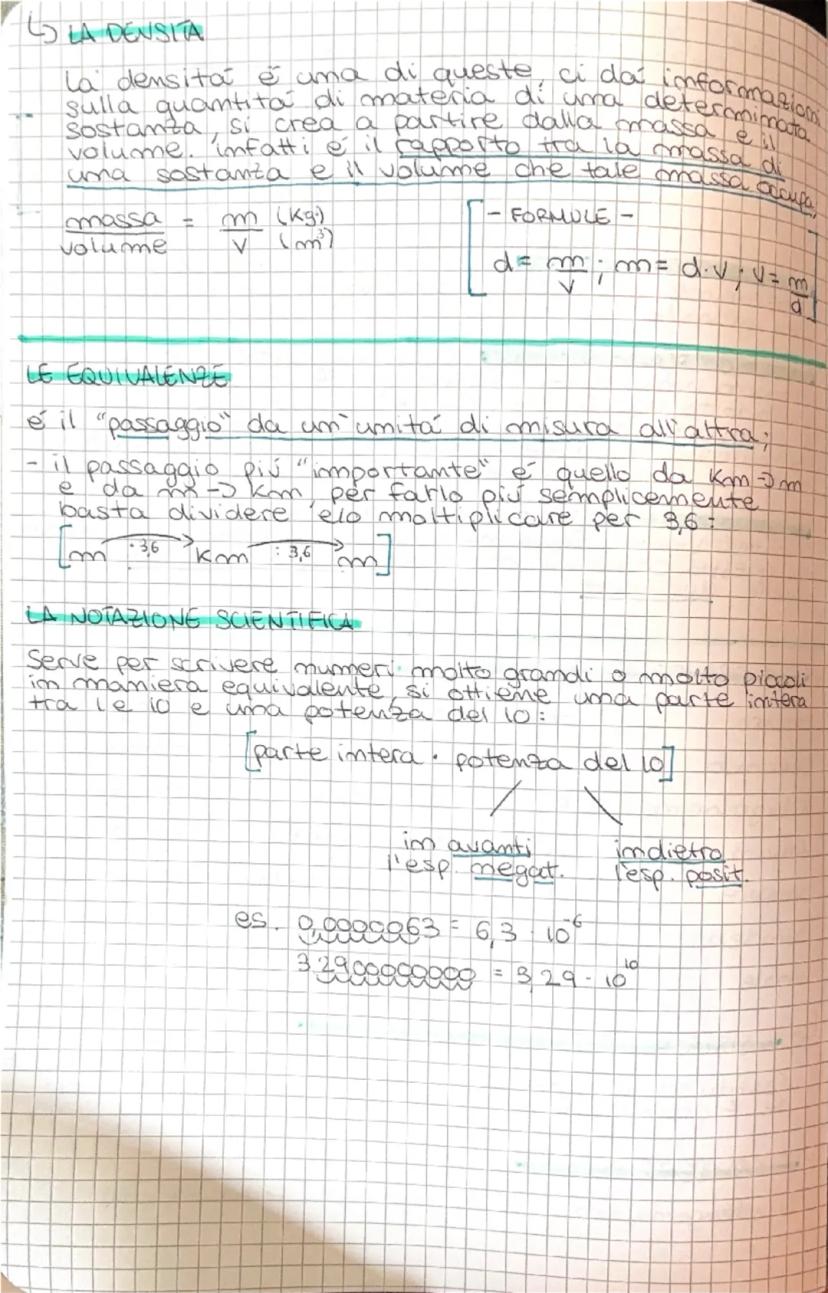 ↳ LA DENSITÀ
La densitá é una di queste, ci dá informazioni
sulla quantitá di materia di una determinata
sostanza, si crea a partire dalla massa e il
volume. infatti é il rapporto tra la massa di
una sostanza e il volume che tale massa occupa,
massa/volume = m (Kg)/V (m³)
- FORMULE -
d= m/v ; m= d·v ; v= m/d
LE EQUIVALENZE
é il "passaggio" da un'unitá di misura all'altra;
- il passaggio piú "importante" é quello da Km→m
e da m→km, per farlo piú semplicemente
basta dividere e/o moltiplicare per 3,6:
[m ·3,6→ Km :3,6→ m]
LA NOTAZIONE SCIENTIFICA
Serve per scrivere numeri molto grandi o molto piccoli
in maniera equivalente, si ottiene una parte intera
tra 1 e 10 e una potenza del 10:
[parte intera · potenza del 10]
in avanti indietro
l'esp. negat. l'esp. posit.
es. 0,0000063 = 6,3 · 10⁻⁶
32900000000 = 3,29 · 10¹⁰